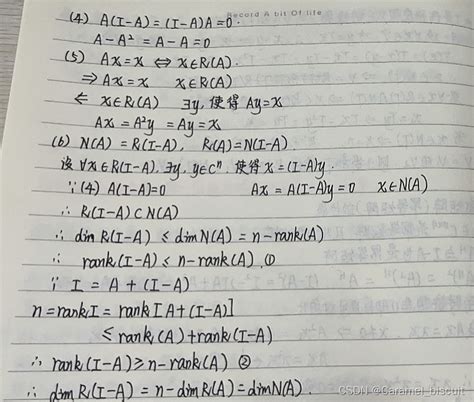 Record A bit Of life
(4) A(I-A) = (I-A)A = 0.
A-A² = A-A = 0
(5) Ax = x ⇔ x∈R(A).
⇒ Ax = x x∈R(A)
← x∈R(A) ∃y, 使得 Ay = x
Ax = A²y = Ay = x
(6) N(A) = R(I-A), R(A) = N(I-A)
设 ∀x∈R(I-A), ∃y, y∈Cⁿ, 使得 x = (I-A)y.
∵ (4) A(I-A)=0 Ax = A(I-A)y = 0 x∈N(A)
∴ R(I-A) ⊂ N(A)
∴ dim R(I-A) ≤ dim N(A) = n-rank(A)
∴ rank(I-A) ≤ n-rank(A). ①
∵ I = A + (I-A)
n = rank I = rank [A + (I-A)]
≤ rank(A) + rank(I-A)
∴ rank(I-A) ≥ n-rank(A) ②
∴ dim R(I-A) = n-dim R(A) = dim N(A).
CSDN @Caramel_biscuit